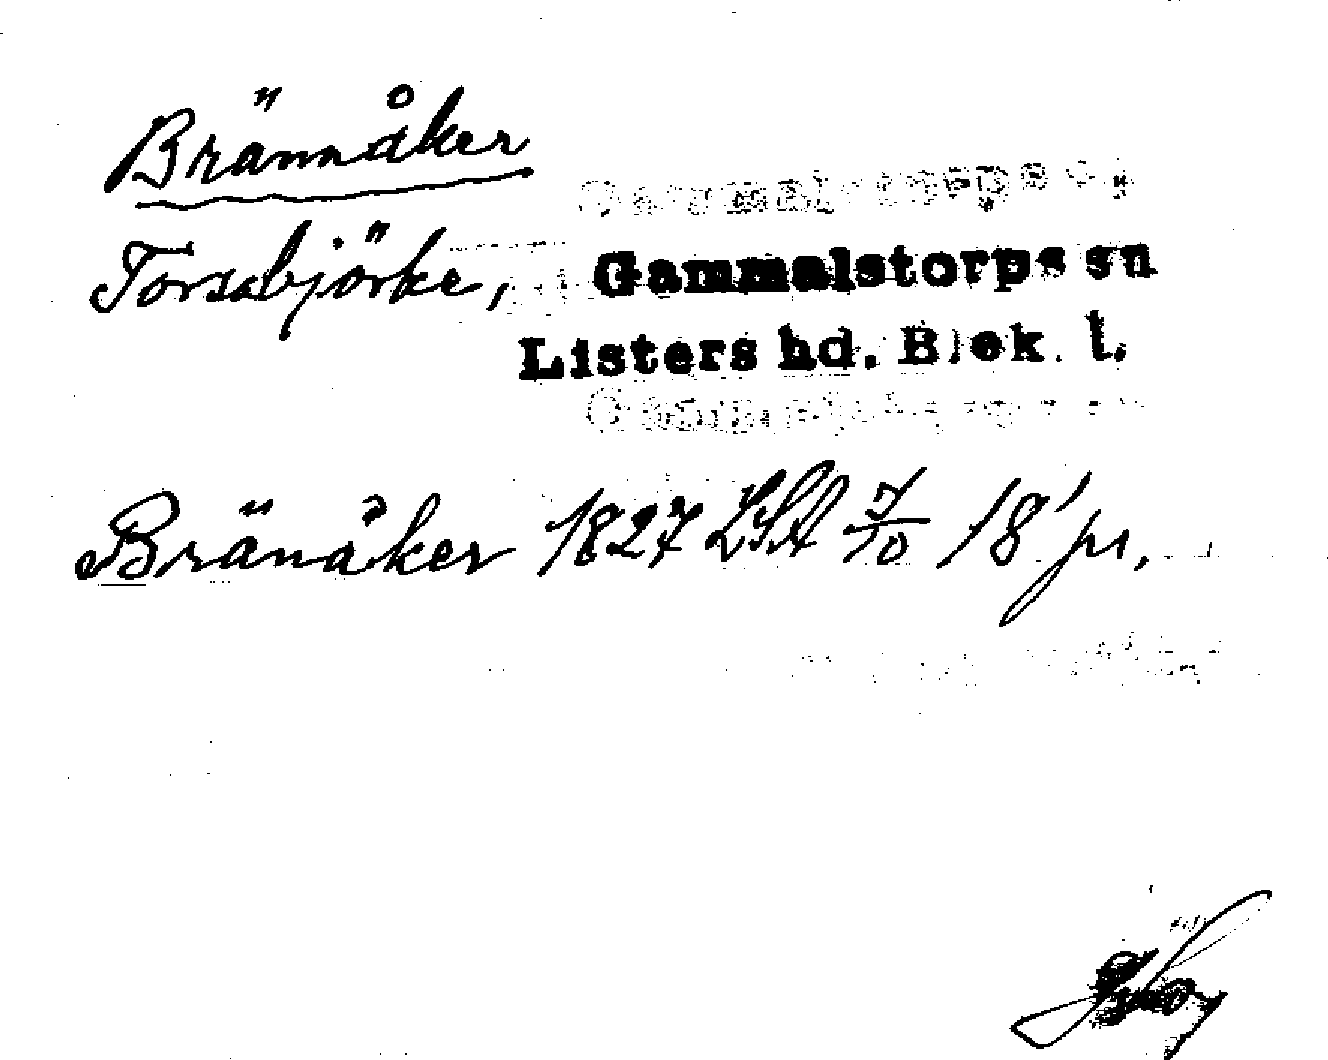 Brännåker
Torsabjörke, Gammalstorps sn
Listers hd. Blek. l.
Bränåker 1827 LSA 7/10 18' pr.